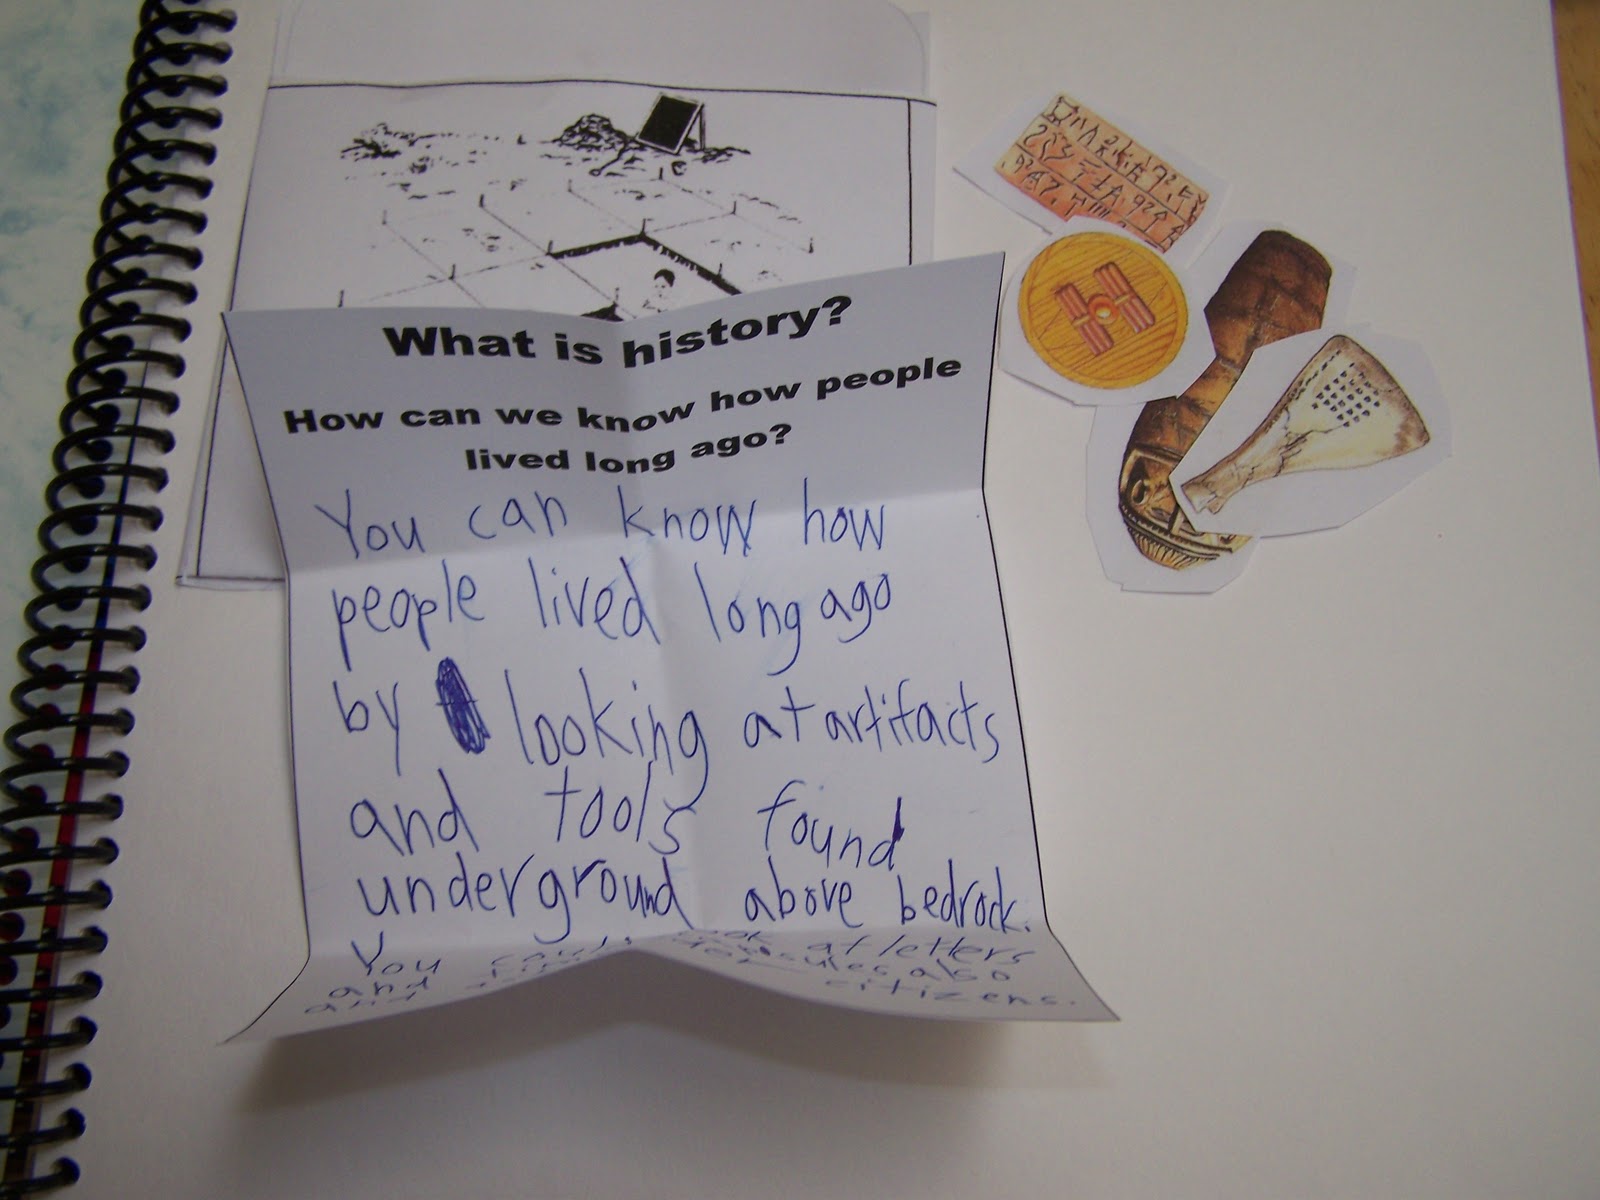 What is history?
How can we know how people
lived long ago?
You can know how
people lived long ago
by looking at artifacts
and tools found
underground above bedrock.
You could look at letters
and time capsules also
and citizens.